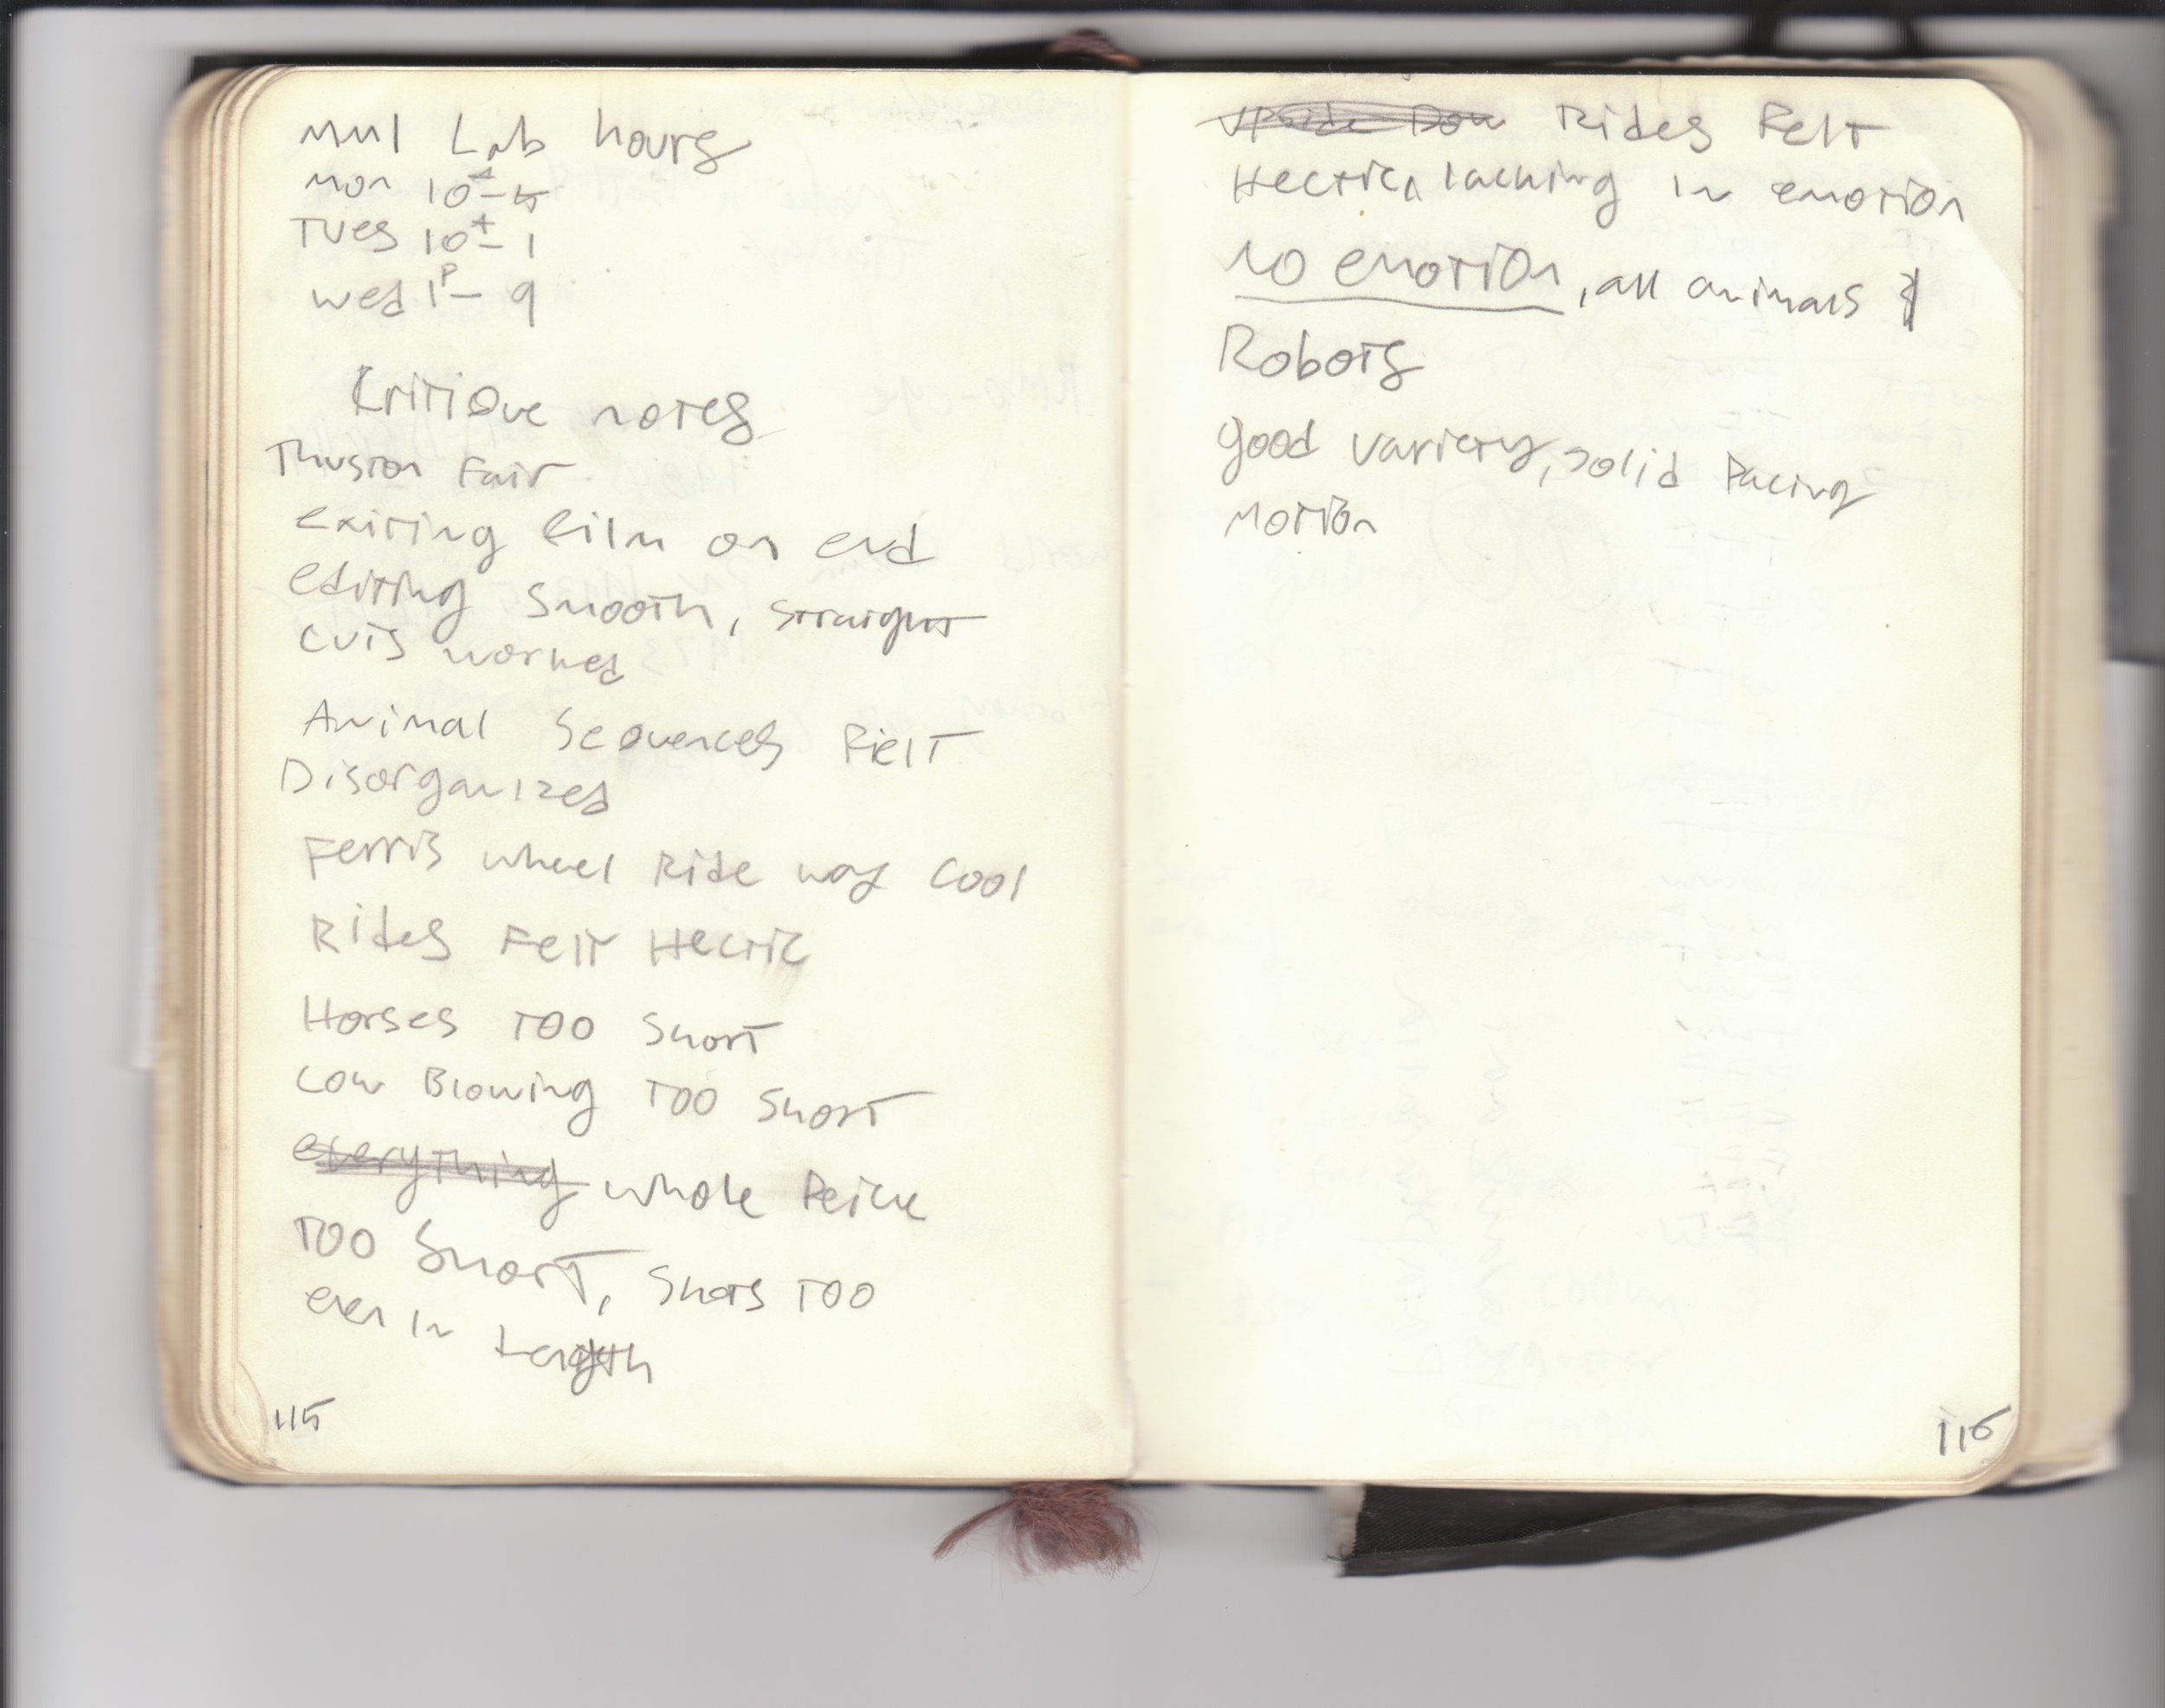 MM1 Lab hours
Mon 10ᴬ-5
Tues 10ᴬ-1
Wed 1ᴾ-9
Critique notes
Thuston Fair
exiting film on end
editing smooth, straight
cuts worked
Animal Sequences Felt
Disorganized
Ferris wheel Ride way Cool
Rides Felt Hectic
Horses Too Short
Cow Blowing Too Short
everything whole Peice
Too Short, Shots Too
even in Length
115
Upside Dow Rides Felt
Hectic, lacking in emotion
No emotion, all animals &
Robots
good variety, solid Pacing
Motion
116